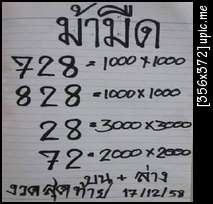 ม้ามืด
728 = 1000 x 1000
828 = 1000 x 1000
28 = 3000 x 3000
72 = 2000 x 2000
บน + ล่าง
งวดสุดท้าย 17/12/58
[356x372] upic.me